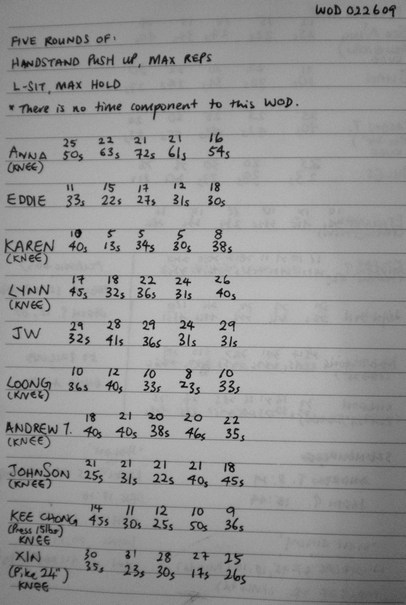 WOD 022609
FIVE ROUNDS OF:
HANDSTAND PUSH UP, MAX REPS
L-SIT, MAX HOLD
* There is no time component to this WOD.
25 22 21 21 16
ANNA 50s 63s 72s 61s 54s
(KNEE)
11 15 17 12 18
EDDIE 33s 22s 27s 31s 30s
10 5 5 5 8
KAREN 40s 13s 34s 30s 38s
(KNEE)
17 18 22 24 26
LYNN 45s 32s 36s 31s 40s
(KNEE)
29 28 29 24 29
JW 32s 41s 36s 31s 31s
10 12 10 8 10
LOONG 36s 40s 33s 23s 33s
(KNEE)
18 21 20 20 22
ANDREW T. 40s 40s 38s 46s 35s
(KNEE)
21 21 21 21 18
JOHNSON 25s 31s 22s 40s 45s
(KNEE)
14 11 12 10 9
KEE CHONG 45s 30s 25s 50s 36s
(Press 15lbs)
KNEE
30 31 28 27 25
XIN 35s 23s 30s 17s 26s
(Pike 24")
KNEE